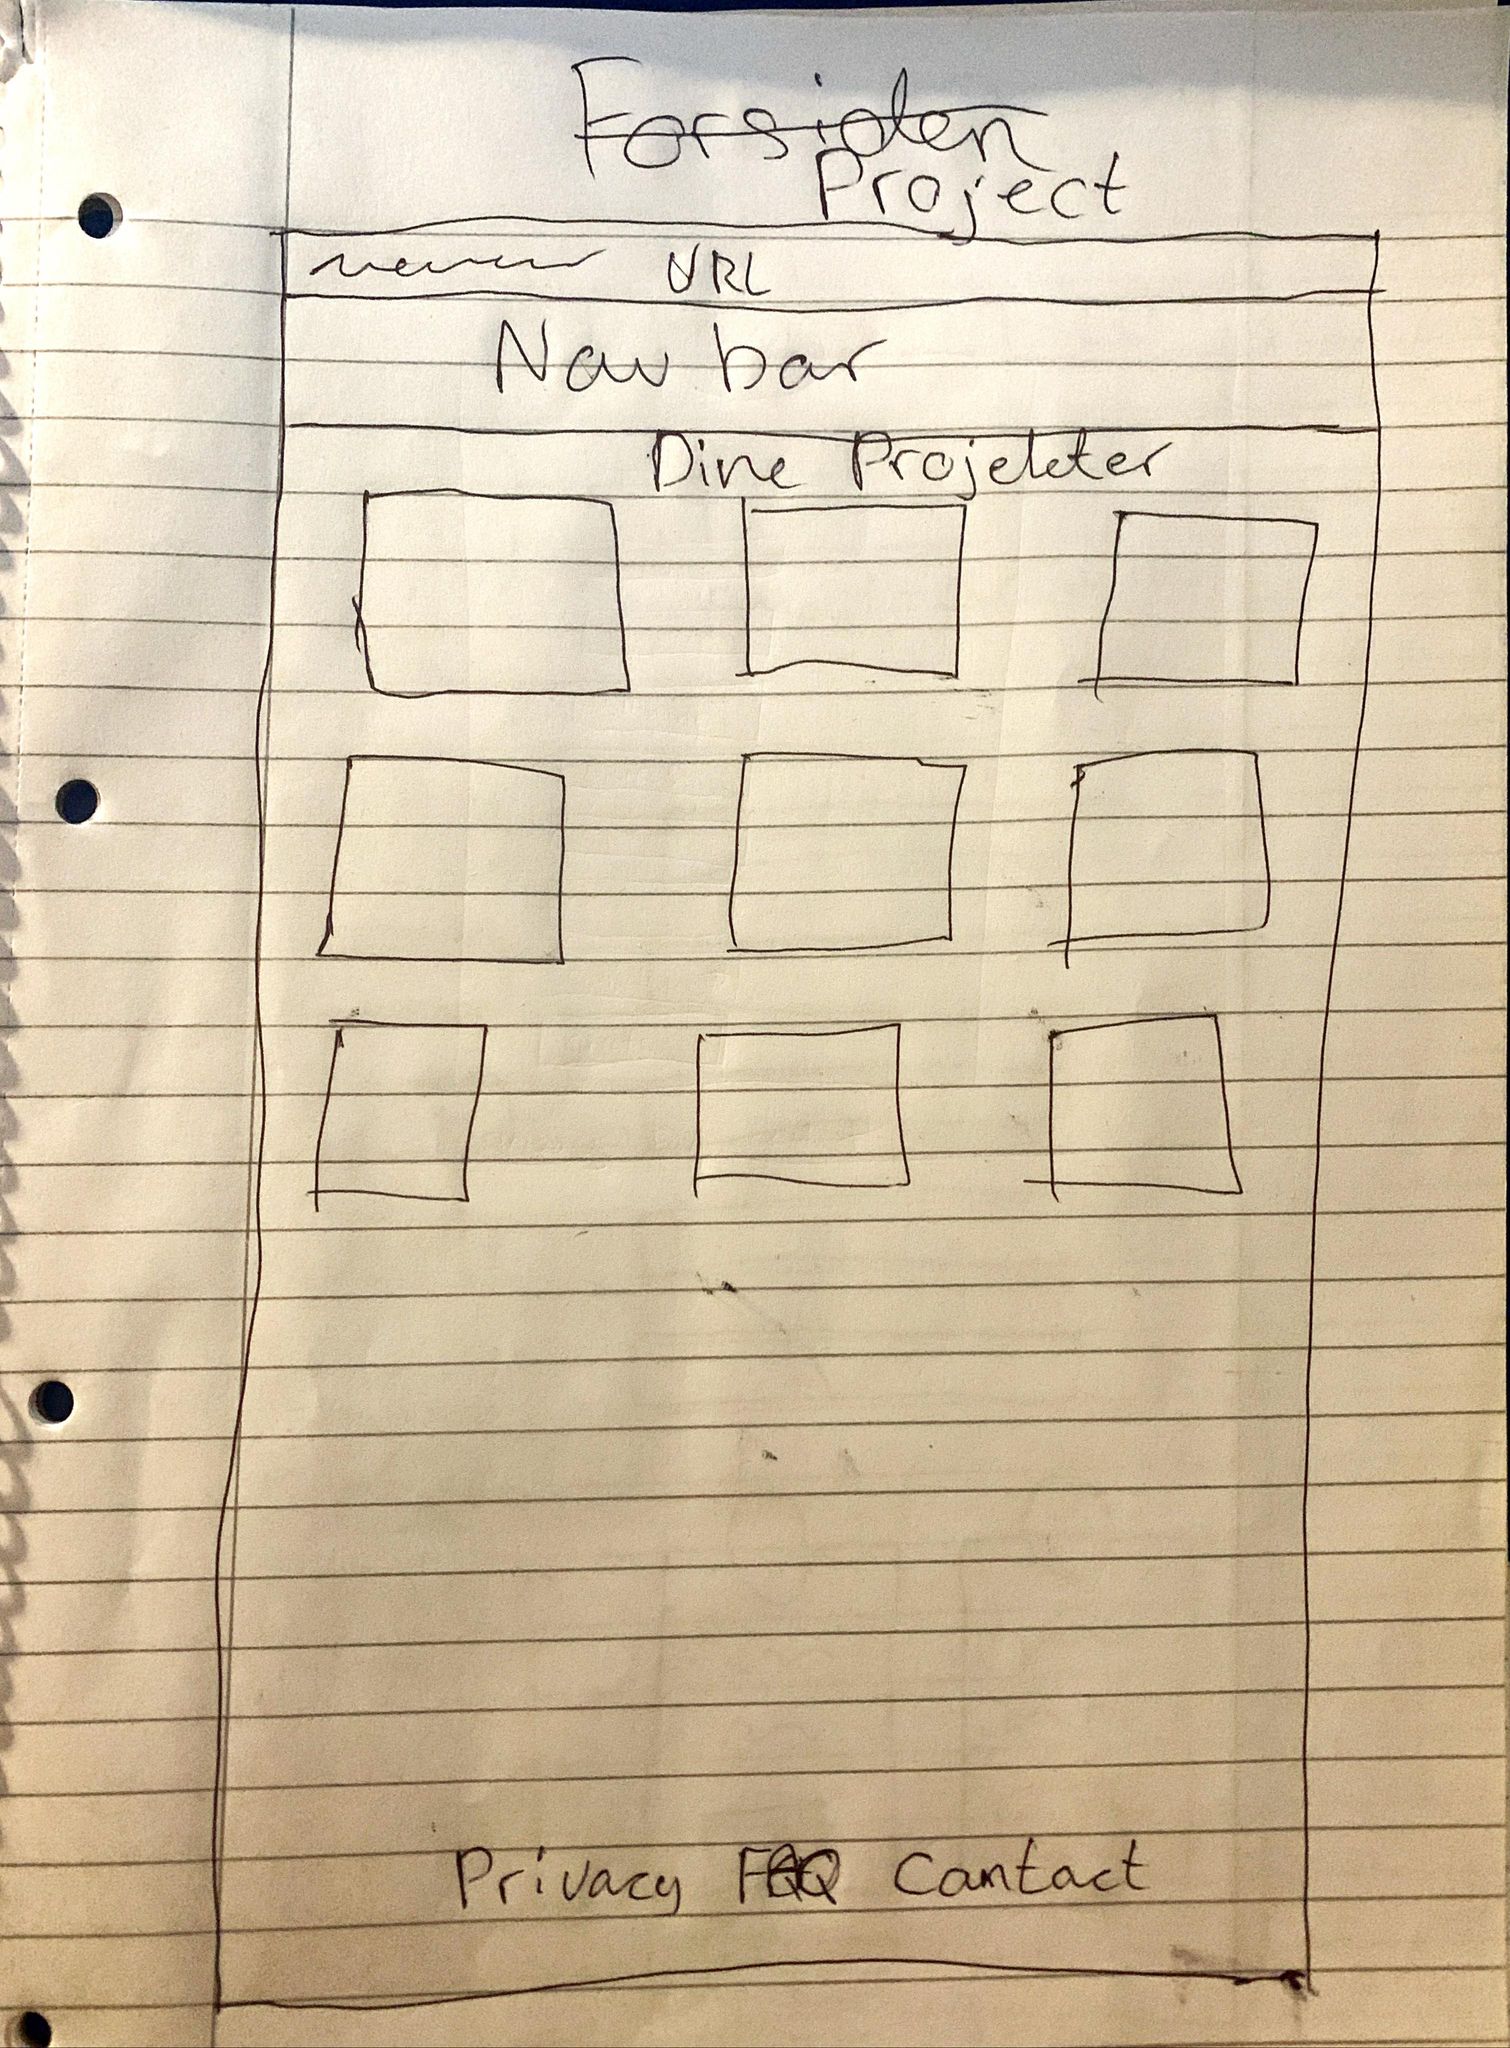 Forsiden
Project
URL
Nav bar
Dine Projekter
Privacy FAQ Contact